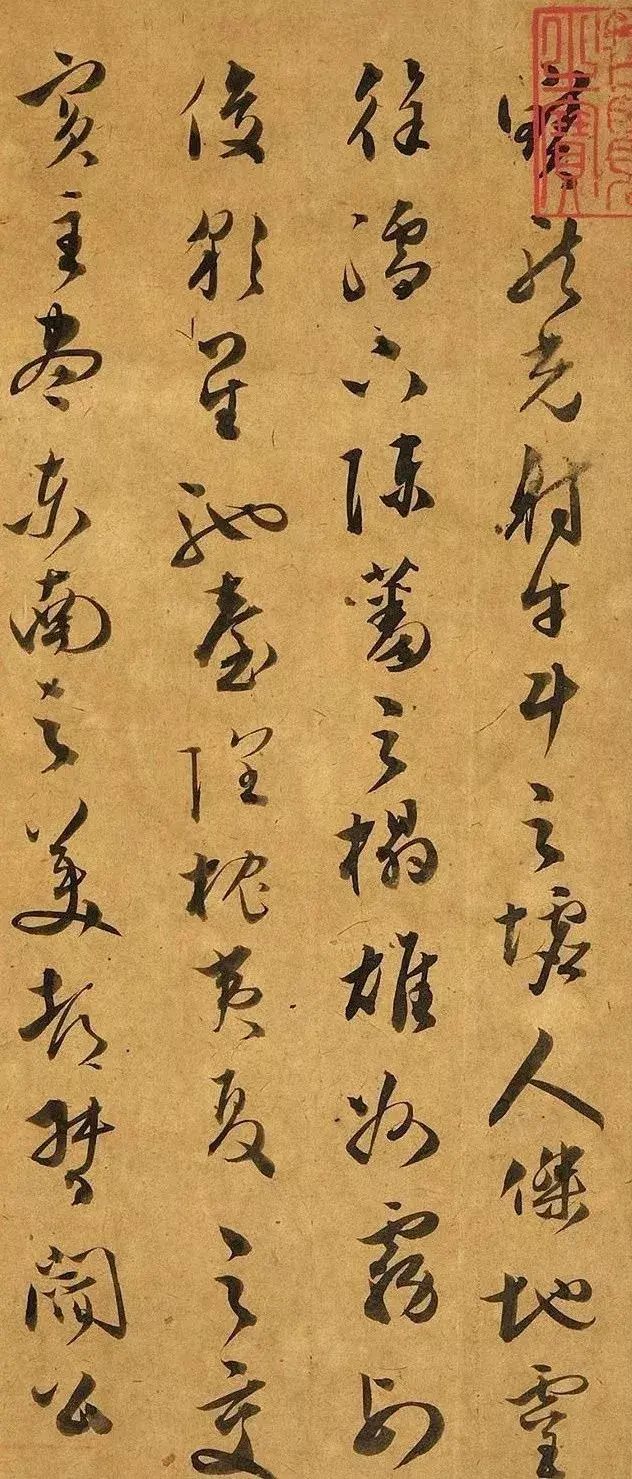 寶龍光射牛斗之墟人傑地靈
徐孺下陳蕃之榻雄州霧列
俊彩星馳臺隍枕夷夏之交
賓主盡東南之美都督閻公